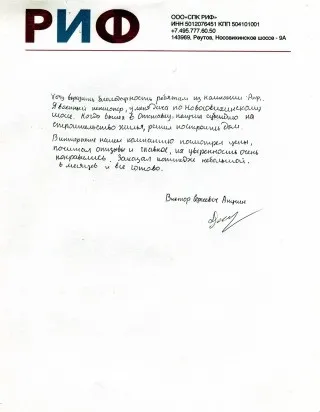 РИФ
ООО«СПК РИФ»
ИНН 5012076451 КПП 504101001
+7.495.777.60.50
143969, Реутов, Носовихинское шоссе - 9А
Хочу выразить благодарность ребятам из компании
Я военный пенсионер, у меня по Новосовихинскому
шоссе. Когда вышел в отставку, получил субсидию на
строительство жилья, решил построить дом.
В интернете нашел компанию посмотрел цены,
почитал отзывы и главное, их уверенность очень
понравилась. Заказал коттедж небольшой.
6 месяцев и все готово.
Виктор Сергеевич